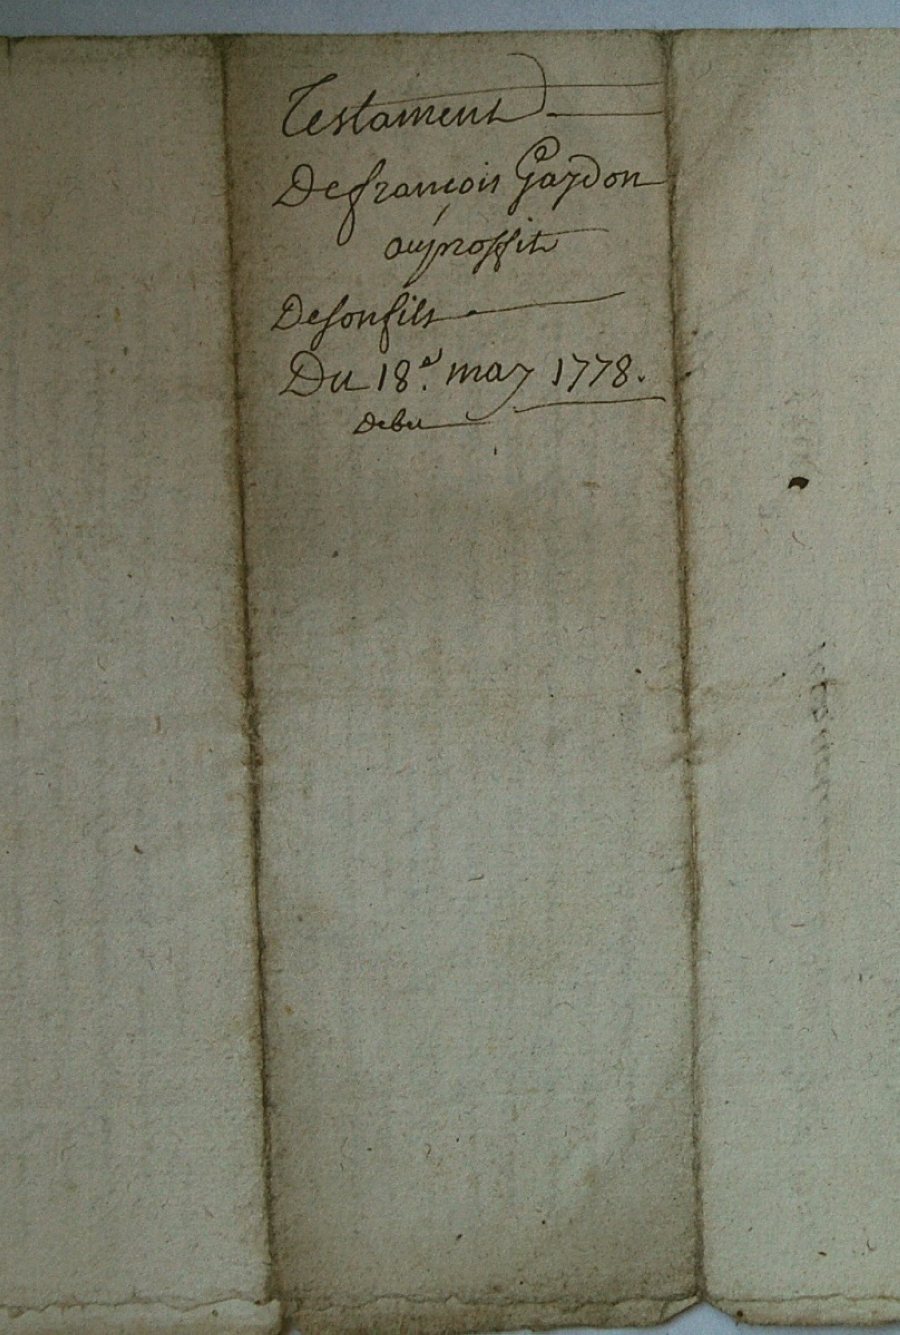 Testament
De françois Gaydon
au proffit
De son fils
Du 18.e may 1778.